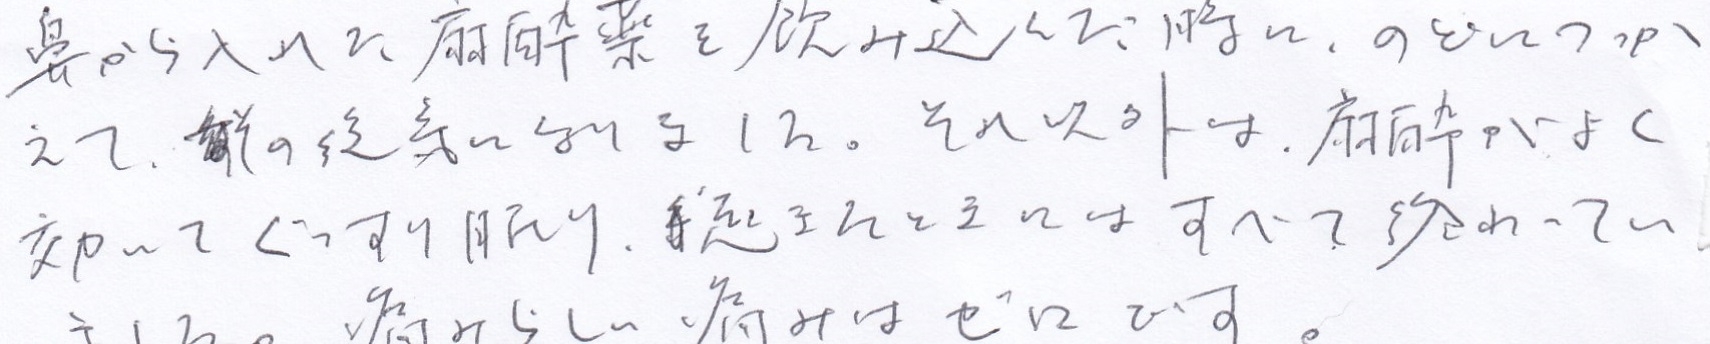 鼻から入れた麻酔薬を飲み込んだ時に、のどにつっか
えて、の気になりました。それ以外は、麻酔がよく
効いてぐっすり眠り、たときにはすべて終わってい
ました。痛みらしい痛みはゼロです。